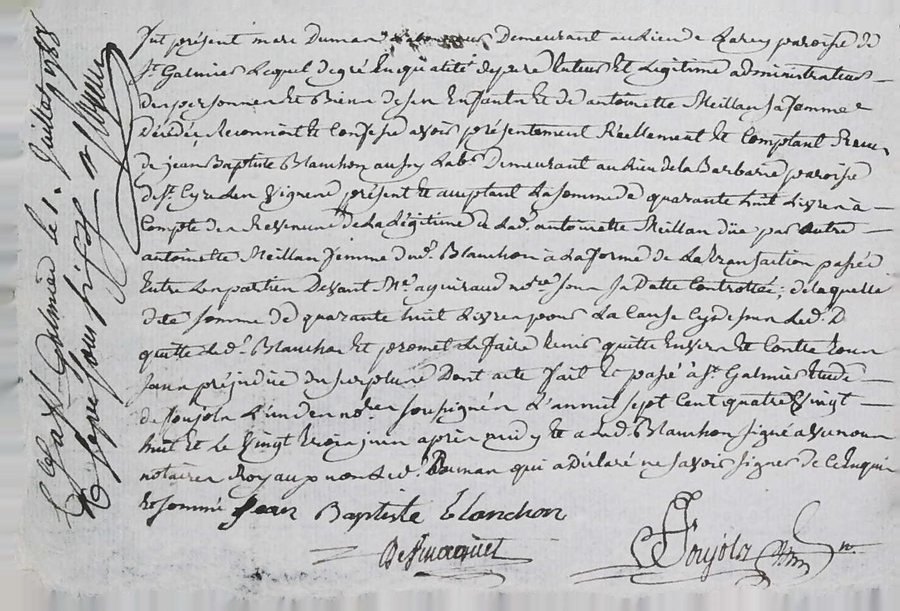 fut présent marc Duman Demeurant au lieu de paroisse de
St. Galmier Lequel de gré En qualité de pere tuteur Et Légitime administrateur
des personnes Et Biens de ses Enfants Et de antoinette Meillan sa femme
décédée Reconnoit Et Confesse avoir présentement Réellement Et Comptant Reçu
de jean Baptiste Blanchon Labr. Demeurant au Lieu de la Barbarie paroisse
de St. Cyr Les Vignes présent Et acceptant La somme de quarante huit Livres à
Compte des Revenus de La Légitime de Lade. antoinette Meillan düe par autre
antoinette Meillan femme dud. Blanchon à La forme de La transaction passée
Entre Les parties Devant Me. aguiraud nore. sous sa Datte Controllée; de laquelle
dite somme de quarante huit Livres pour La Cause Cy dessus Led. D
quitte Led. Blanchon Et promet Le faire tenir quitte Envers Et Contre tous
sans préjudice du surplus Dont acte fait Et passé à St. Galmier Etude
de Poujola L'un des nores. soussignés L'an mil sept Cent quatre Vingt
huit Et le Vingt trois juin après midy Et a Led. Blanchon signé avec nous
notaires Royaux non Led. Duman qui a Déclaré ne savoir signer de Ce Enquis
Et sommé Jean Baptiste blanchon
Poujola
St. Galmier le 1. Juillet 1788